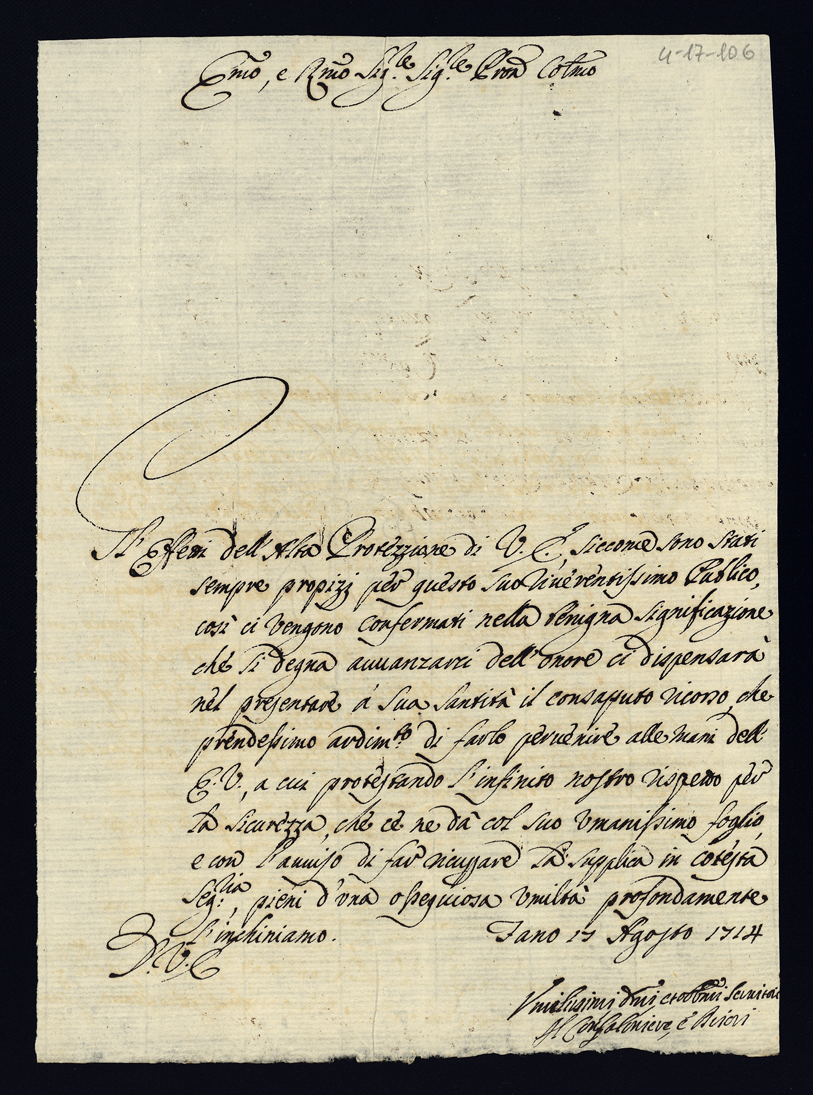 4-17-106
Emo, e Rmo Sig.re Sig.re Pron Colmo
Gl' Effetti dell'Alta Protezzione di V. E., siccome sono stati
sempre propizj per questo suo riverentissimo Publico,
così ci vengono confermati nella benigna significazione
che si degna avvanzarci dell'onore ci dispensarà
nel presentare à Sua Santità il consaputo ricorso, che
prendessimo ardim.to di farlo pervenire alle mani dell'
E. V., a cui protestando l'infinito nostro rispetto per
la sicurezza, che ce ne dà col suo umanissimo foglio,
e con l'avviso di far ricapitare la supplica in cotesta
Seg.ria, pieni d'una ossequiosa umiltà profondamente
l'inchiniamo. Fano 17 Agosto 1714
D. V. E
Umilissimi dmi et obbmi Servitori
Il Confaloniere, e Priori